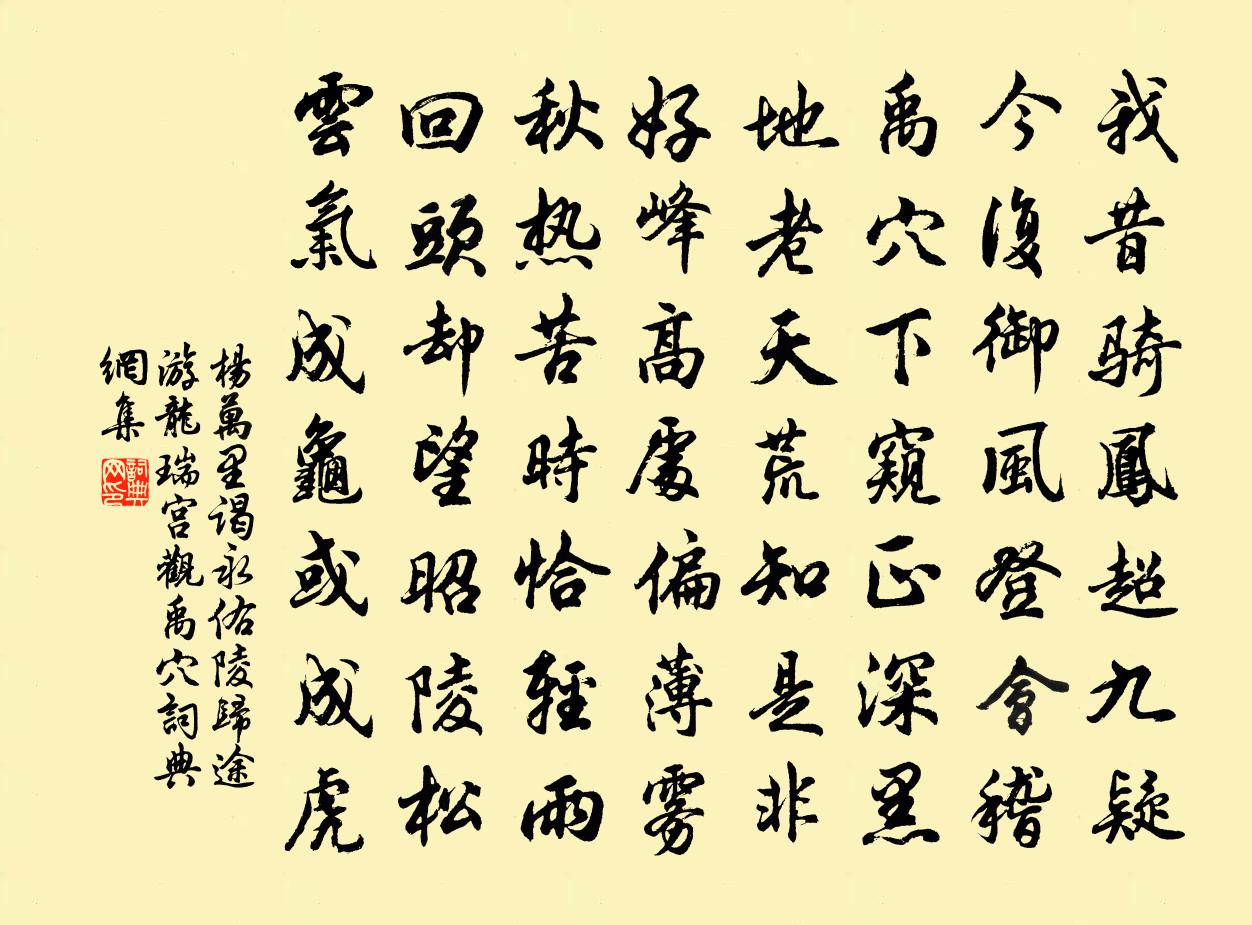 我昔骑鳳超九疑
今復御風登會稽
禹穴下窺正深黑
地老天荒知是非
好峰高處偏薄雾
秋热苦時恰輕雨
回頭却望昭陵松
雲氣成龜或成虎
楊萬里谒永佑陵歸途
游龍瑞宫觀禹穴詞典
網集
詞典
网印